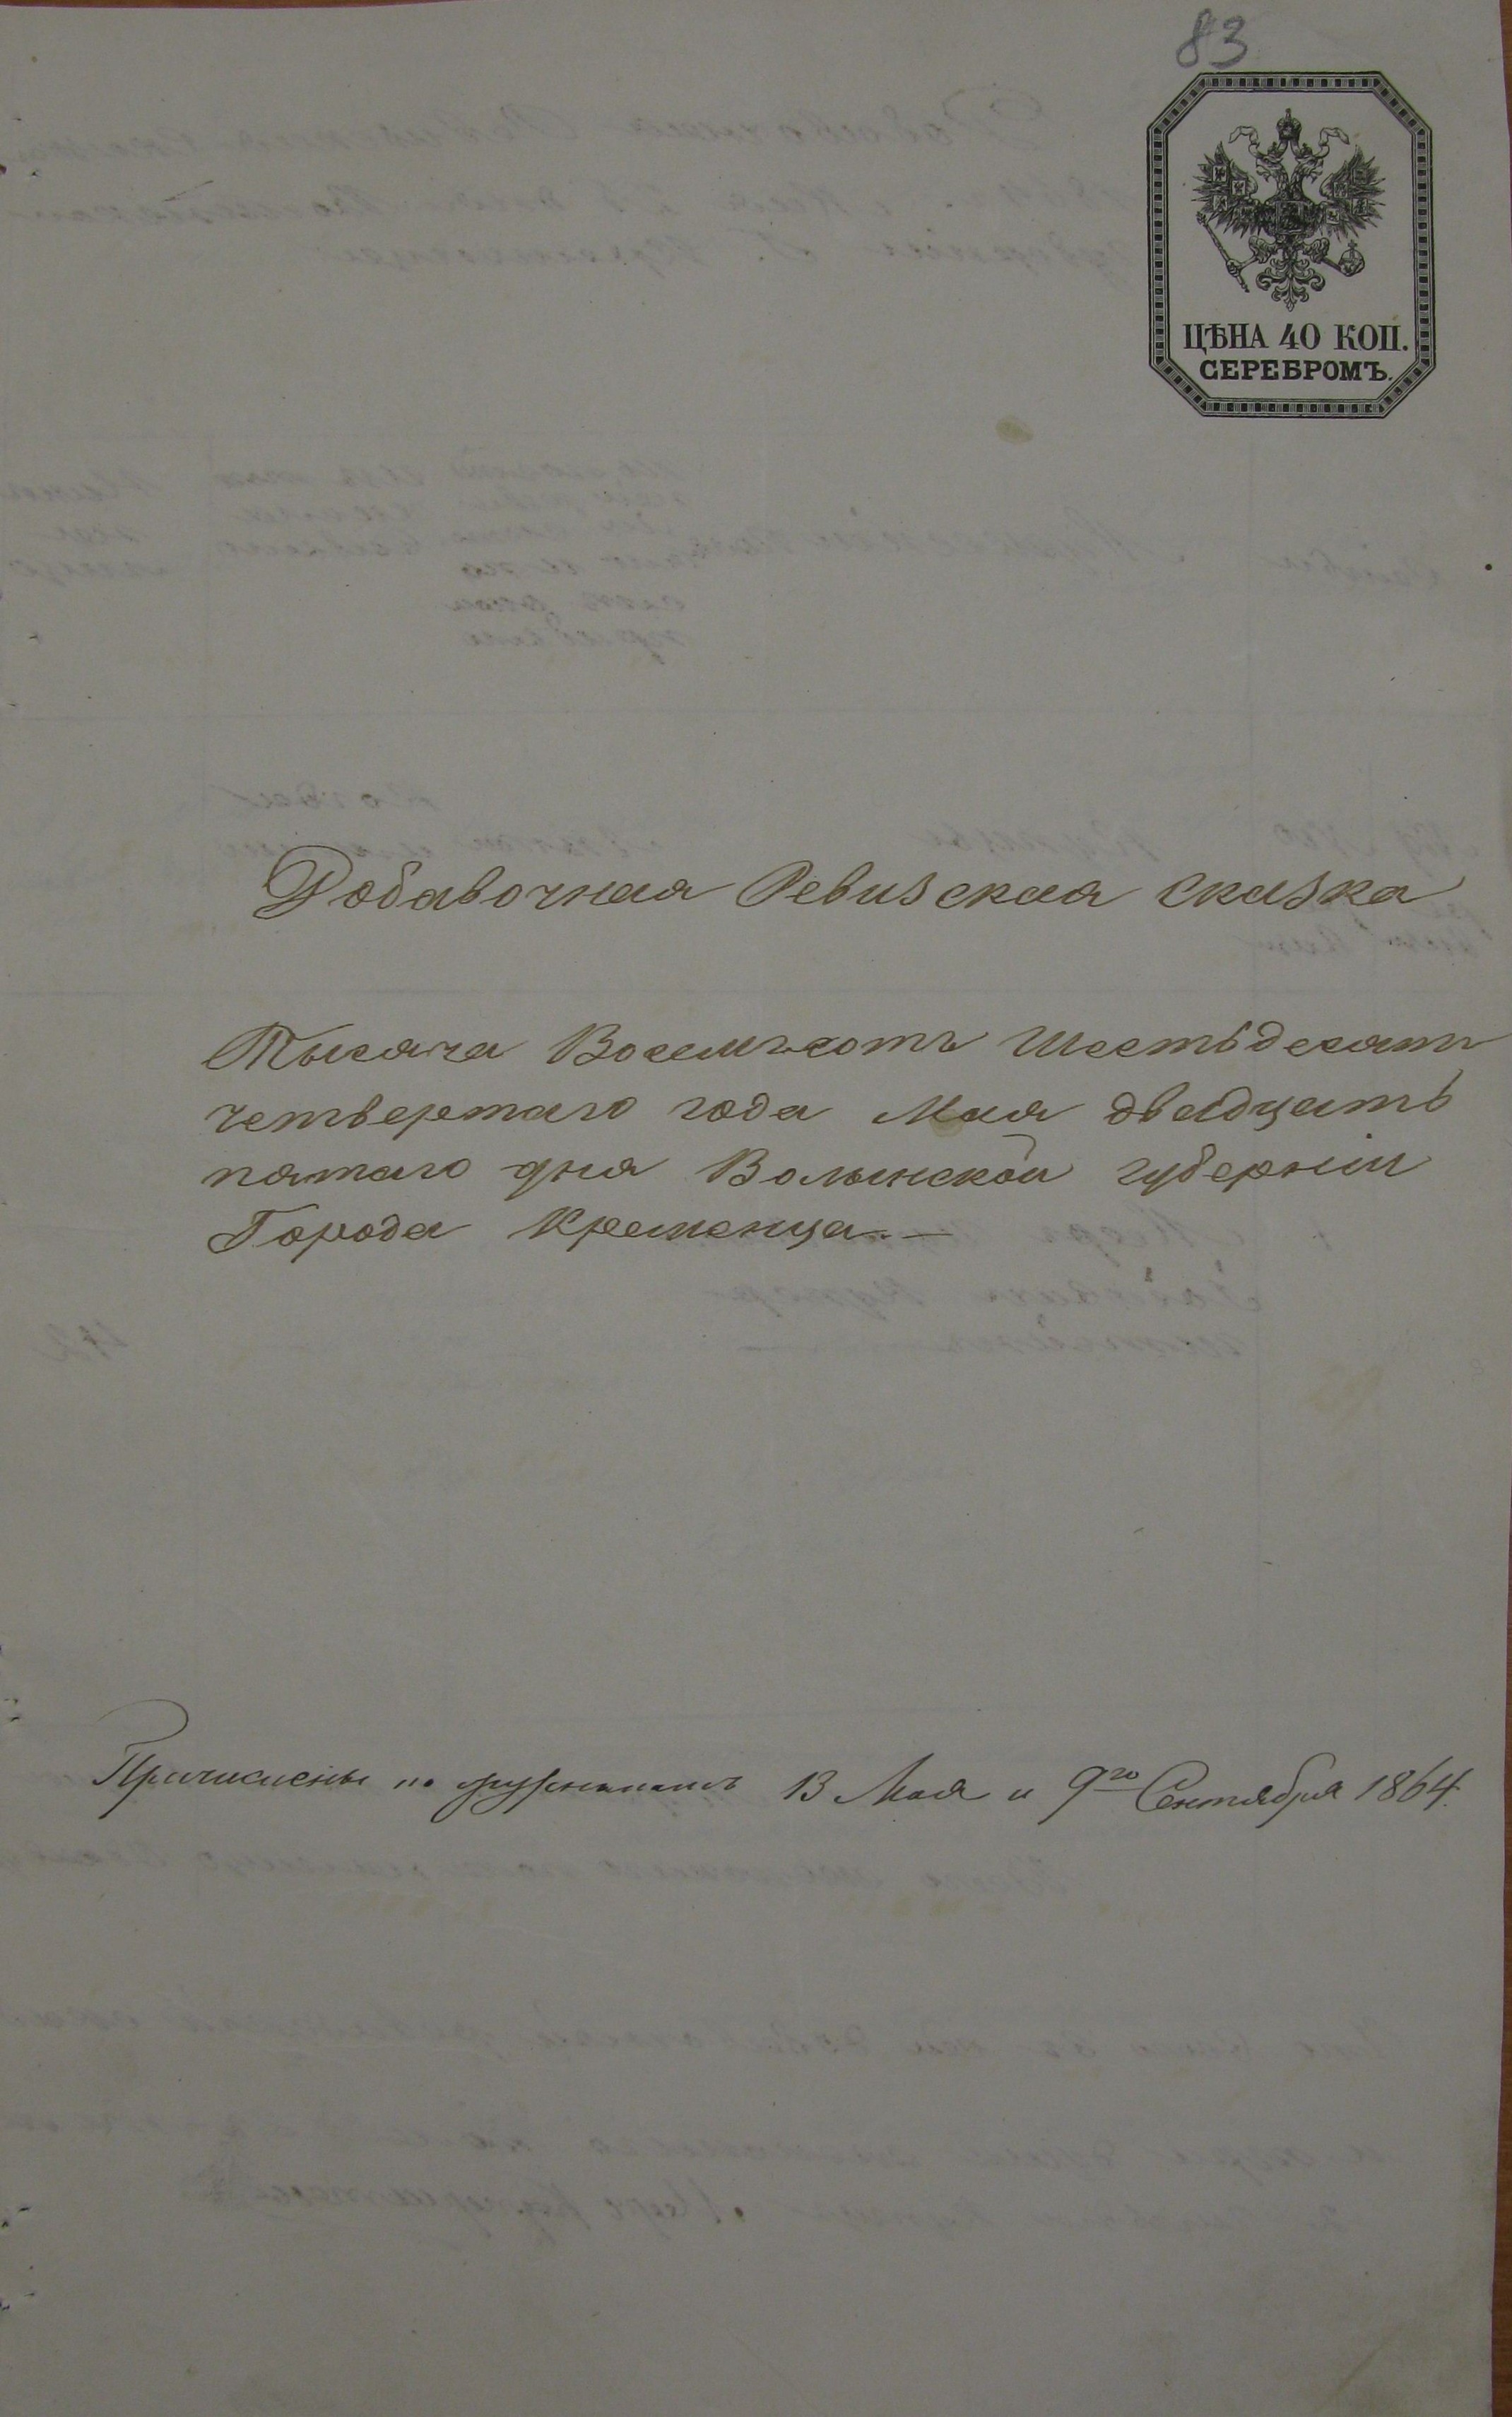 83
ЦѢНА 40 КОП.
СЕРЕБРОМЪ.
Добавочная Ревизская сказка
Тысяча Восемьсотъ Шестьдесятъ
четвертаго года Мая двадцать
пятаго дня Волынской губерніи
Города Кременца. —
Причислены по 13 Мая и 9го Сентября 1864.